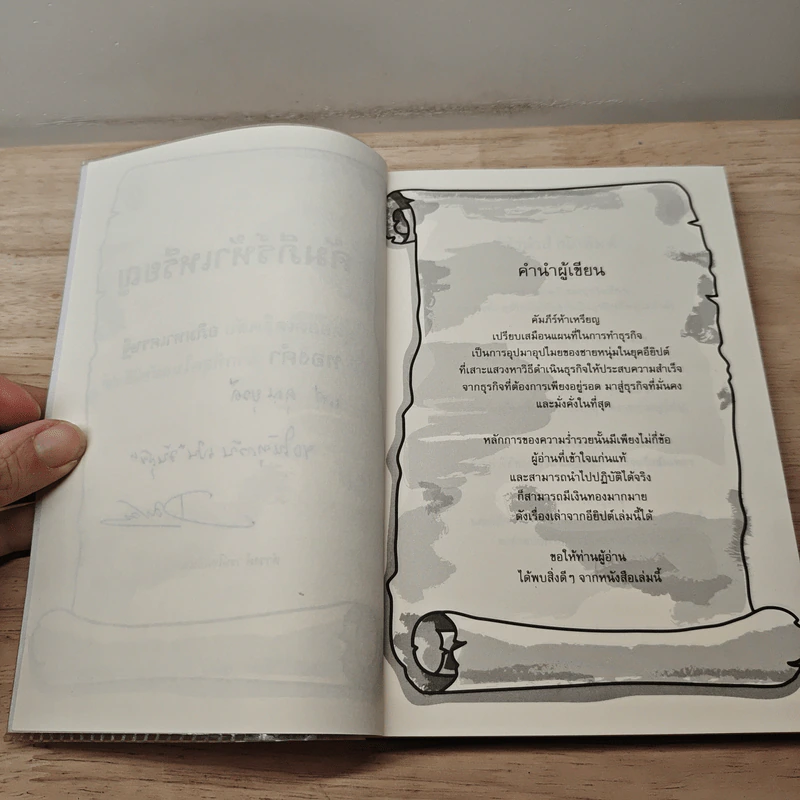 คัมภีร์ห้าเหรียญ
คำนำผู้เขียน
คัมภีร์ห้าเหรียญ
เปรียบเสมือนแผนที่ในการทำธุรกิจ
เป็นการอุปมาอุปไมยของชายหนุ่มในยุคอียิปต์
ที่เสาะแสวงหาวิธีดำเนินธุรกิจให้ประสบความสำเร็จ
จากธุรกิจที่ต้องการเพียงอยู่รอด มาสู่ธุรกิจที่มั่นคง
และมั่งคั่งในที่สุด
หลักการของความร่ำรวยนั้นมีเพียงไม่กี่ข้อ
ผู้อ่านที่เข้าใจแก่นแท้
และสามารถนำไปปฏิบัติได้จริง
ก็สามารถมีเงินทองมากมาย
ดังเรื่องเล่าจากอียิปต์เล่มนี้ได้
ขอให้ท่านผู้อ่าน
ได้พบสิ่งดีๆ จากหนังสือเล่มนี้